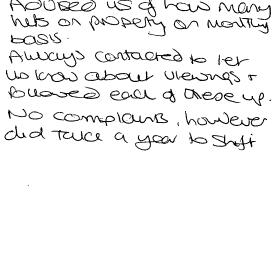 Advised us of how many
hits on property on monthly
basis.
Always contacted to let
us know about viewings +
followed each of these up.
No complaints, however
did take a year to shift